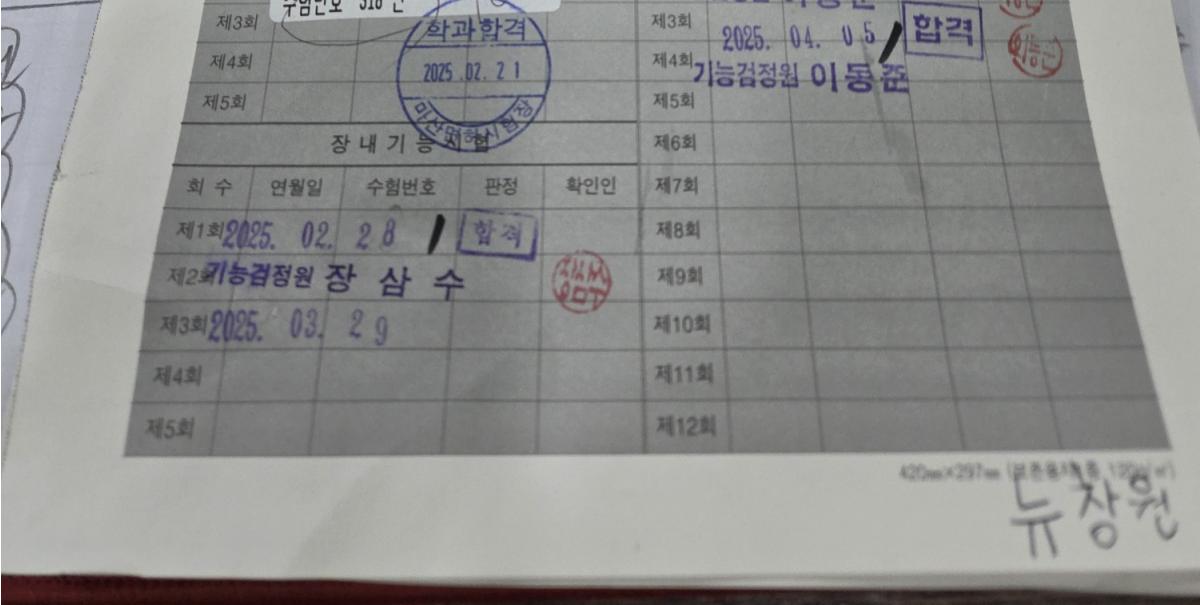 수험번호 318
제3회
제4회
제5회
학과합격
2025.02.21
마산면허시험장
장내기능시험
회 수 연월일 수험번호 판정 확인인
제1회 2025. 02. 28 합격
제2회 기능검정원 장삼수
제3회 2025. 03. 29
제4회
제5회
제3회 2025. 04. 05 합격
제4회 기능검정원 이동준
제5회
제6회
제7회
제8회
제9회
제10회
제11회
제12회
420㎜×297㎜
뉴창원